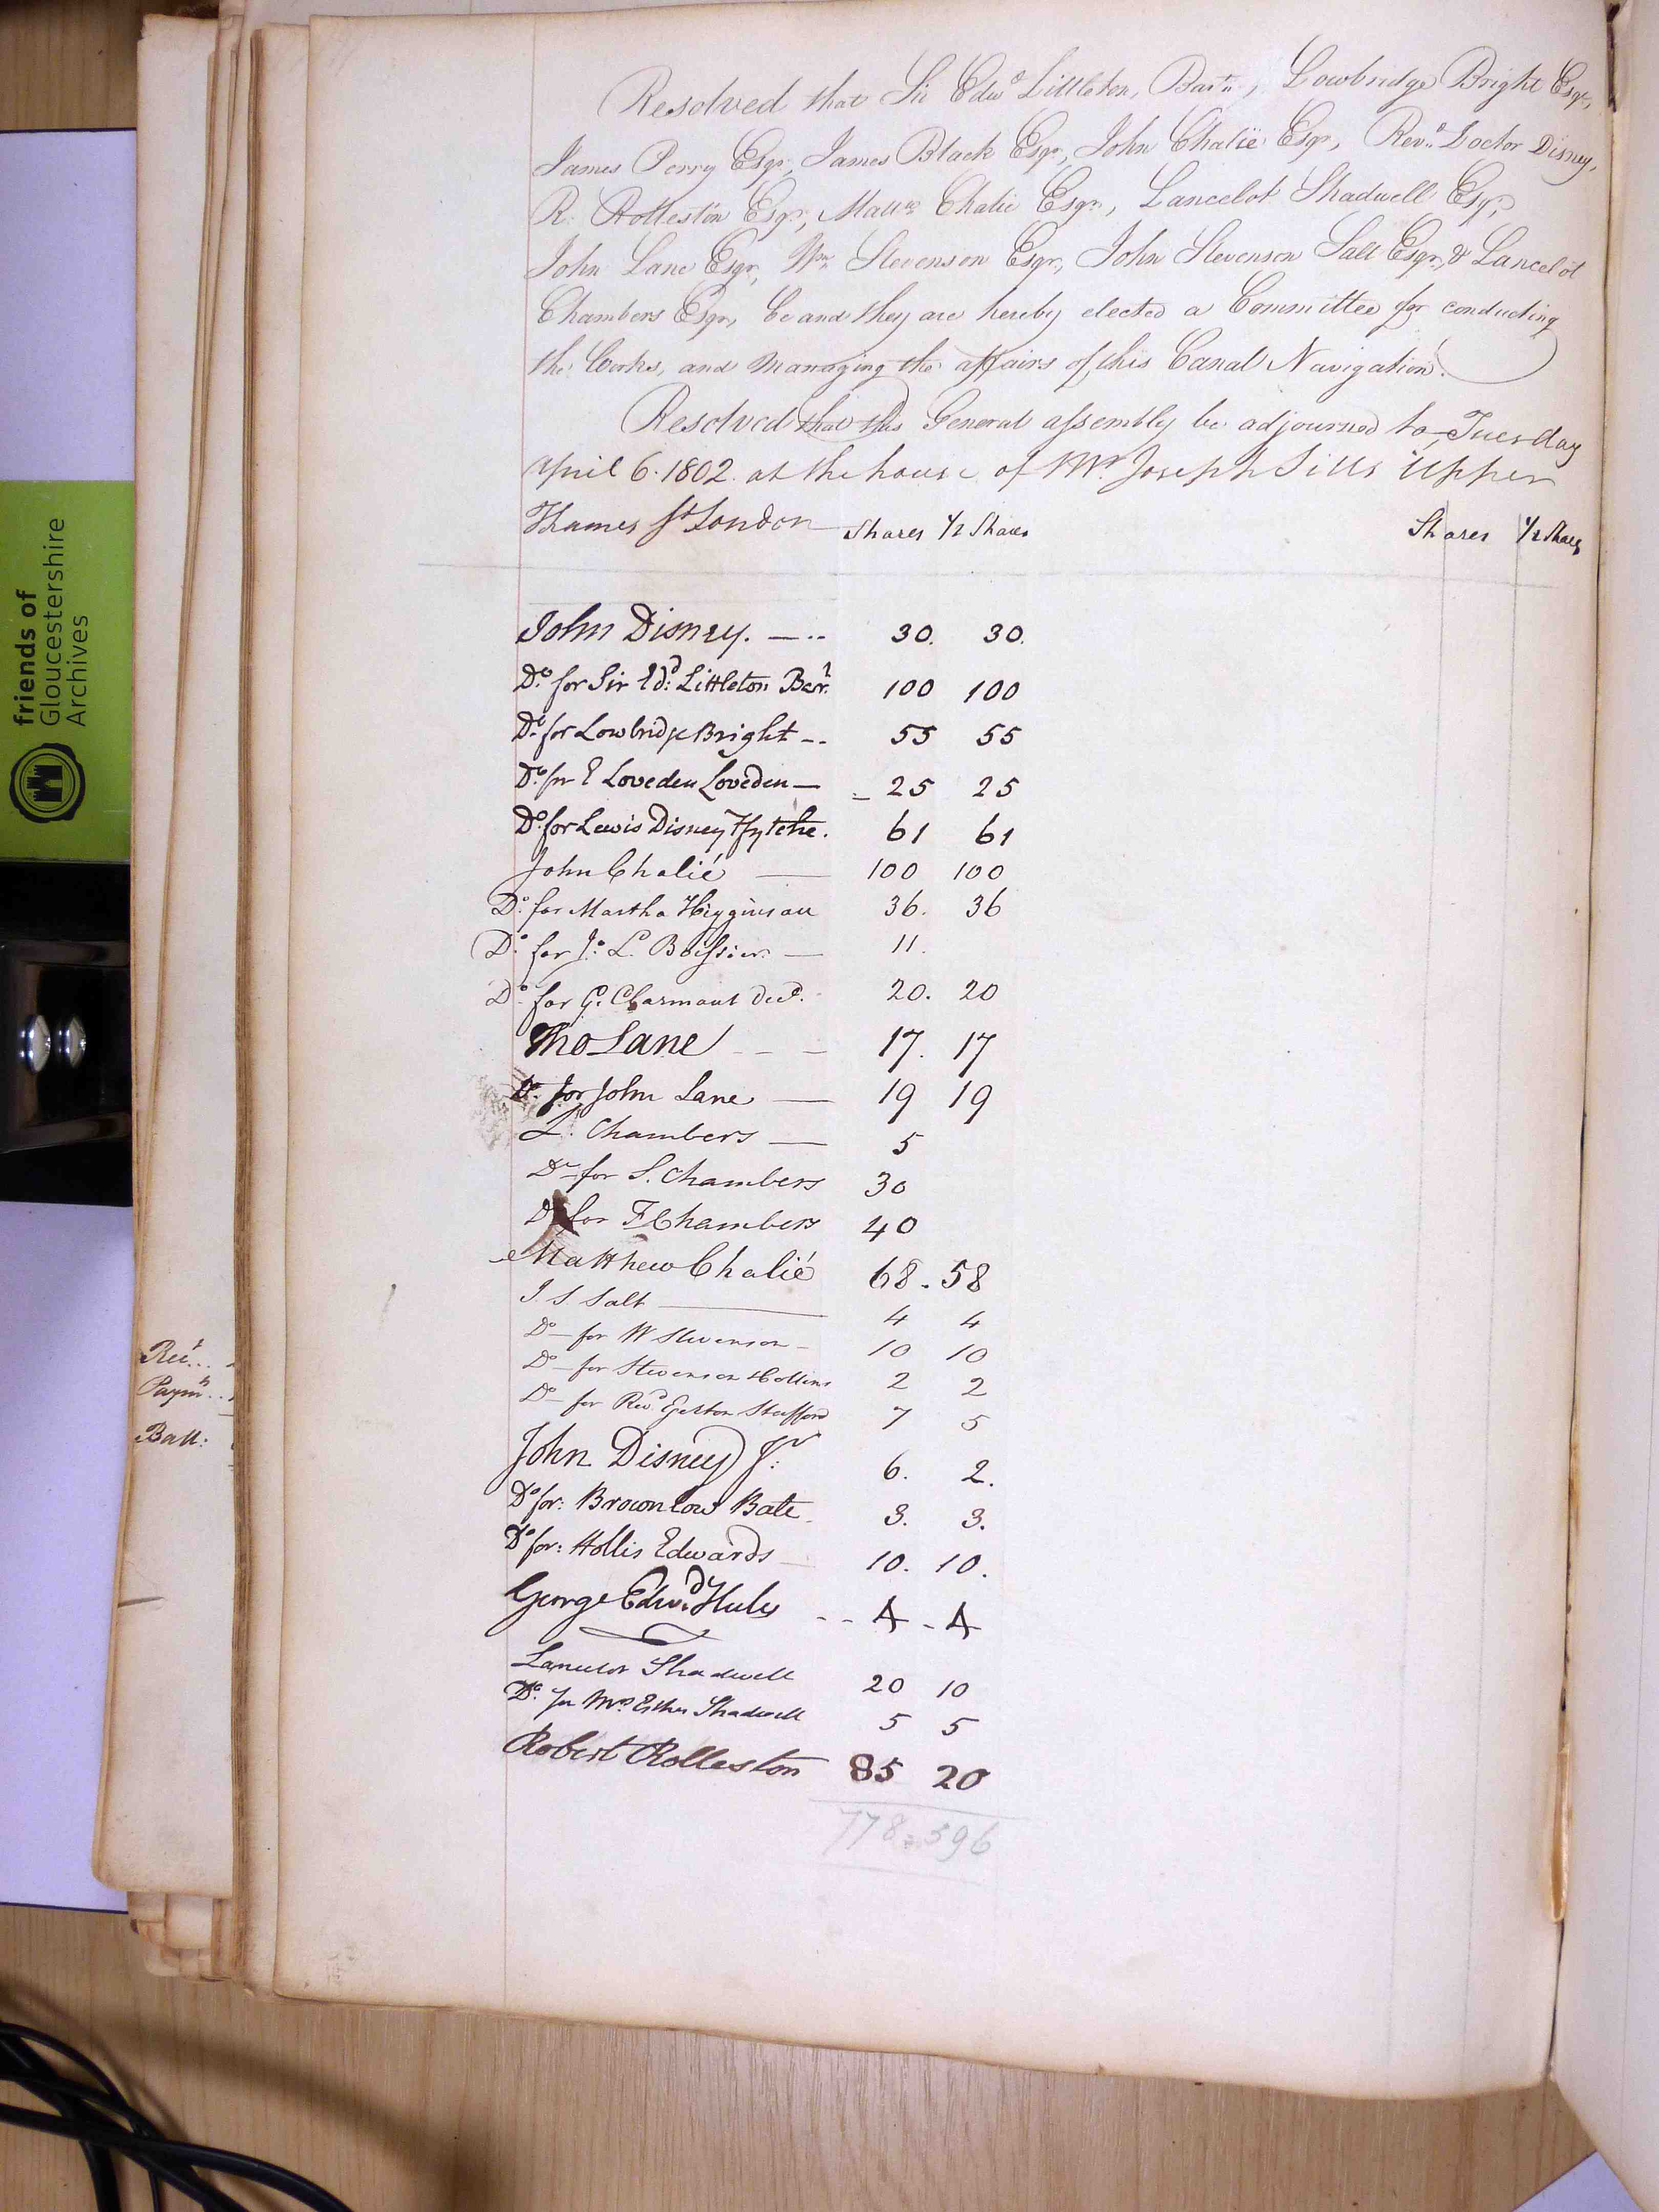 Resolved that Sir Edwd Littleton, Bart., Lowbridge Bright Esqr,
James Perry Esqr, James Black Esqr, John Chalié Esqr, Revd Doctor Disney,
R. Rolleston Esqr, Mattw Chalie Esqr, Lancelot Shadwell Esqr,
John Lane Esqr, Wm Stevenson Esqr, John Stevenson Salt Esqr, & Lancelot
Chambers Esqr, be and they are hereby elected a Committee for conducting
the Works, and Managing the affairs of this Canal Navigation.
Resolved that this General assembly be adjourned to Tuesday
April 6. 1802. at the house of Mr. Joseph Sills Upper
Thames St London Shares 1/2 Shares Shares 1/2 Shares
John Disney. 30. 30.
Do. for Sir Ed: Littleton Bart. 100 100
Do. for Lowbridge Bright 55 55
Do. for E Loveden Loveden 25 25
Do. for Lewis Disney Ffytche. 61 61
John Chalié 100 100
Do. for Martha Higginson 36. 36
Do. for Jo. L. Boissier 11.
Do. for G. Charmant Decd. 20. 20
Tho Lane 17. 17
Do. for John Lane 19 19
L. Chambers 5
Do for S. Chambers 30
Do for F Chambers 40
Matthew Chalié 68. 58
J S Salt 4 4
Do for W Stevenson 10 10
Do for Stevenson Collins 2 2
Do for Revd. Egerton Stafford 7 5
John Disney Jr: 6. 2.
Do for: Brownlow Bate 3. 3.
Do for: Hollis Edwards 10. 10.
George Edwd 4 - 4
Lancelot Shadwell 20 10
Do. for Mrs Esther Shadwell 5 5
Robert Rolleston 85 20
778 = 596
Rect...
Paymts..
Ball:
friends of
Gloucestershire
Archives